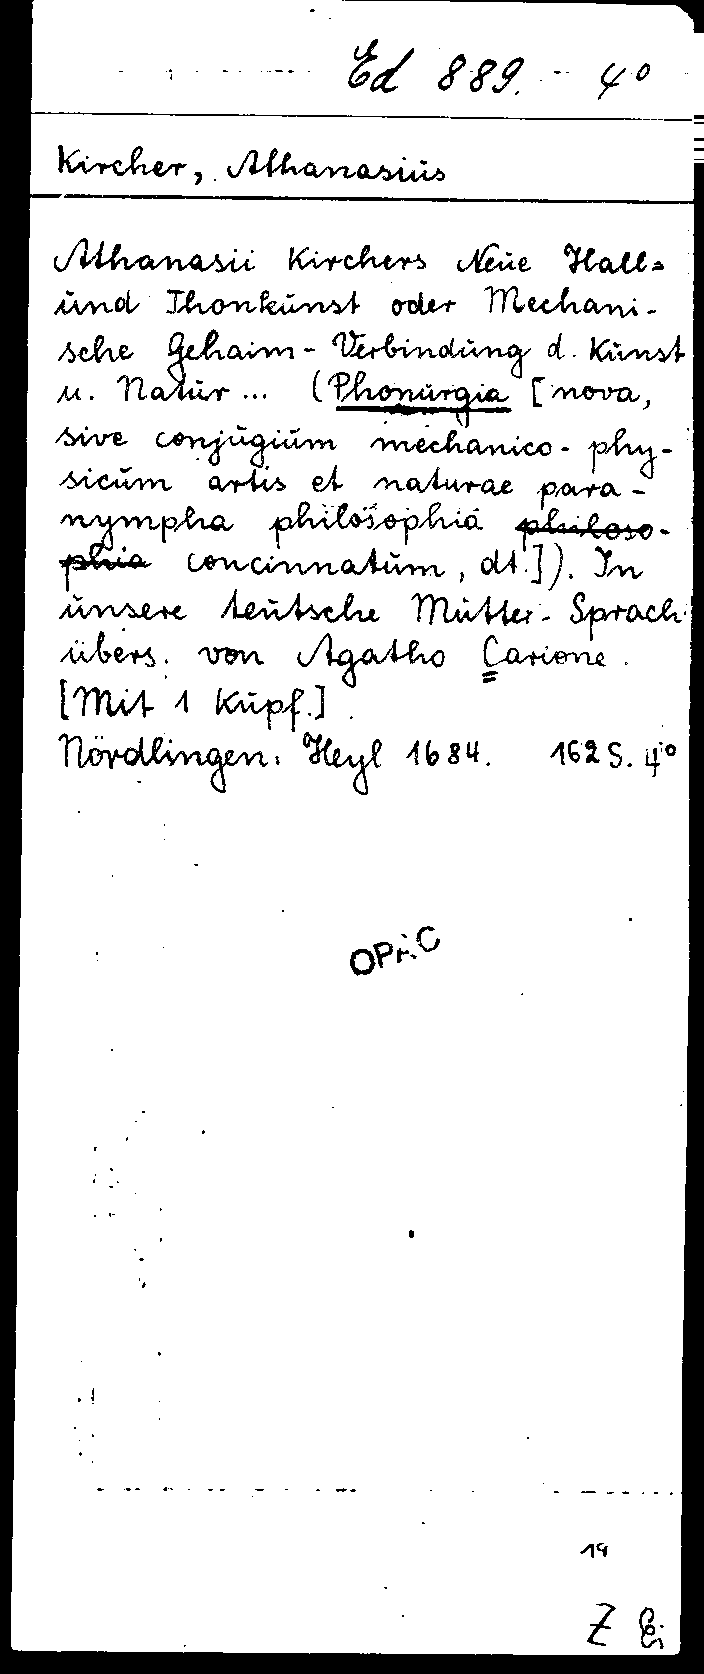 Ed 889. - 4°
Kircher, Athanasius
Athanasii Kirchers Neue Hall=
und Thonkunst oder Mechani-
sche Gehaim-Verbindung d. Kunst
u. Natur... (Phonurgia [nova,
sive conjugium mechanico-phy-
sicum artis et naturae para-
nympha philosophia philoso-
phia concinnatum, dt.]). In
unsere teutsche Mutter-Sprach
übers. von Agatho Carione.
[Mit 1 Kupf.]
Nördlingen: Heyl 1684. 162 S. 4°
OPAC
19
Z